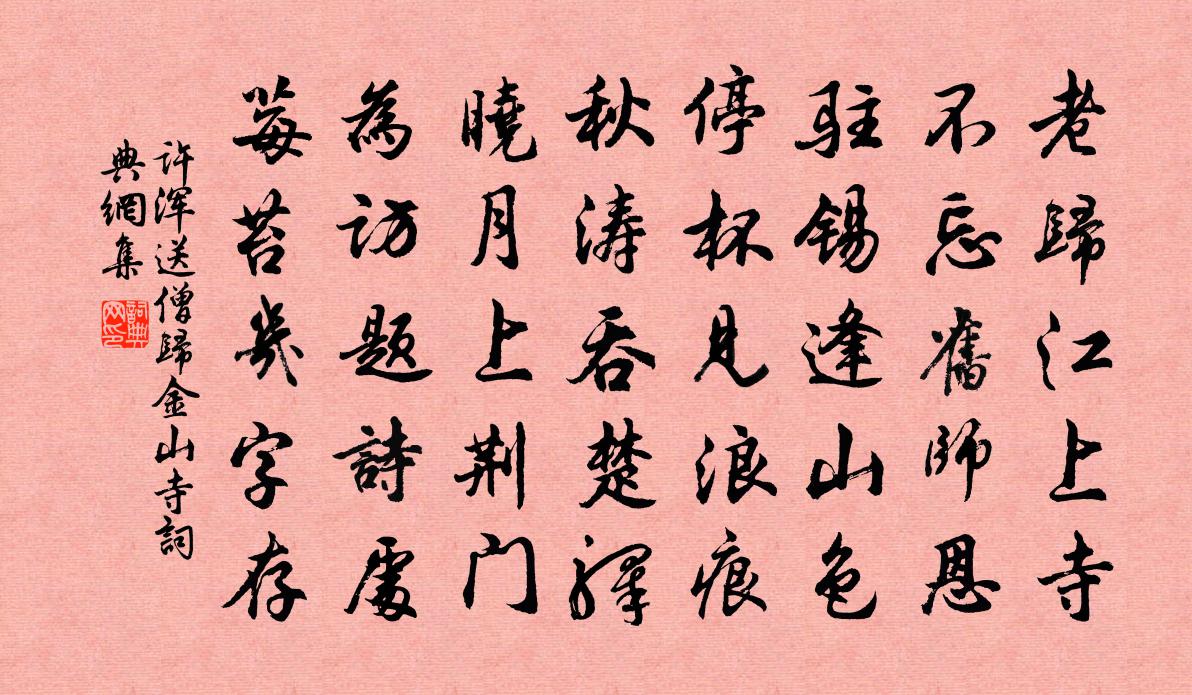 老歸江上寺
不忘舊師恩
駐錫逢山色
停杯見浪痕
秋濤吞楚驛
曉月上荆門
為訪題詩處
莓苔幾字存
許渾送僧歸金山寺詞
典網集
詞典
网印